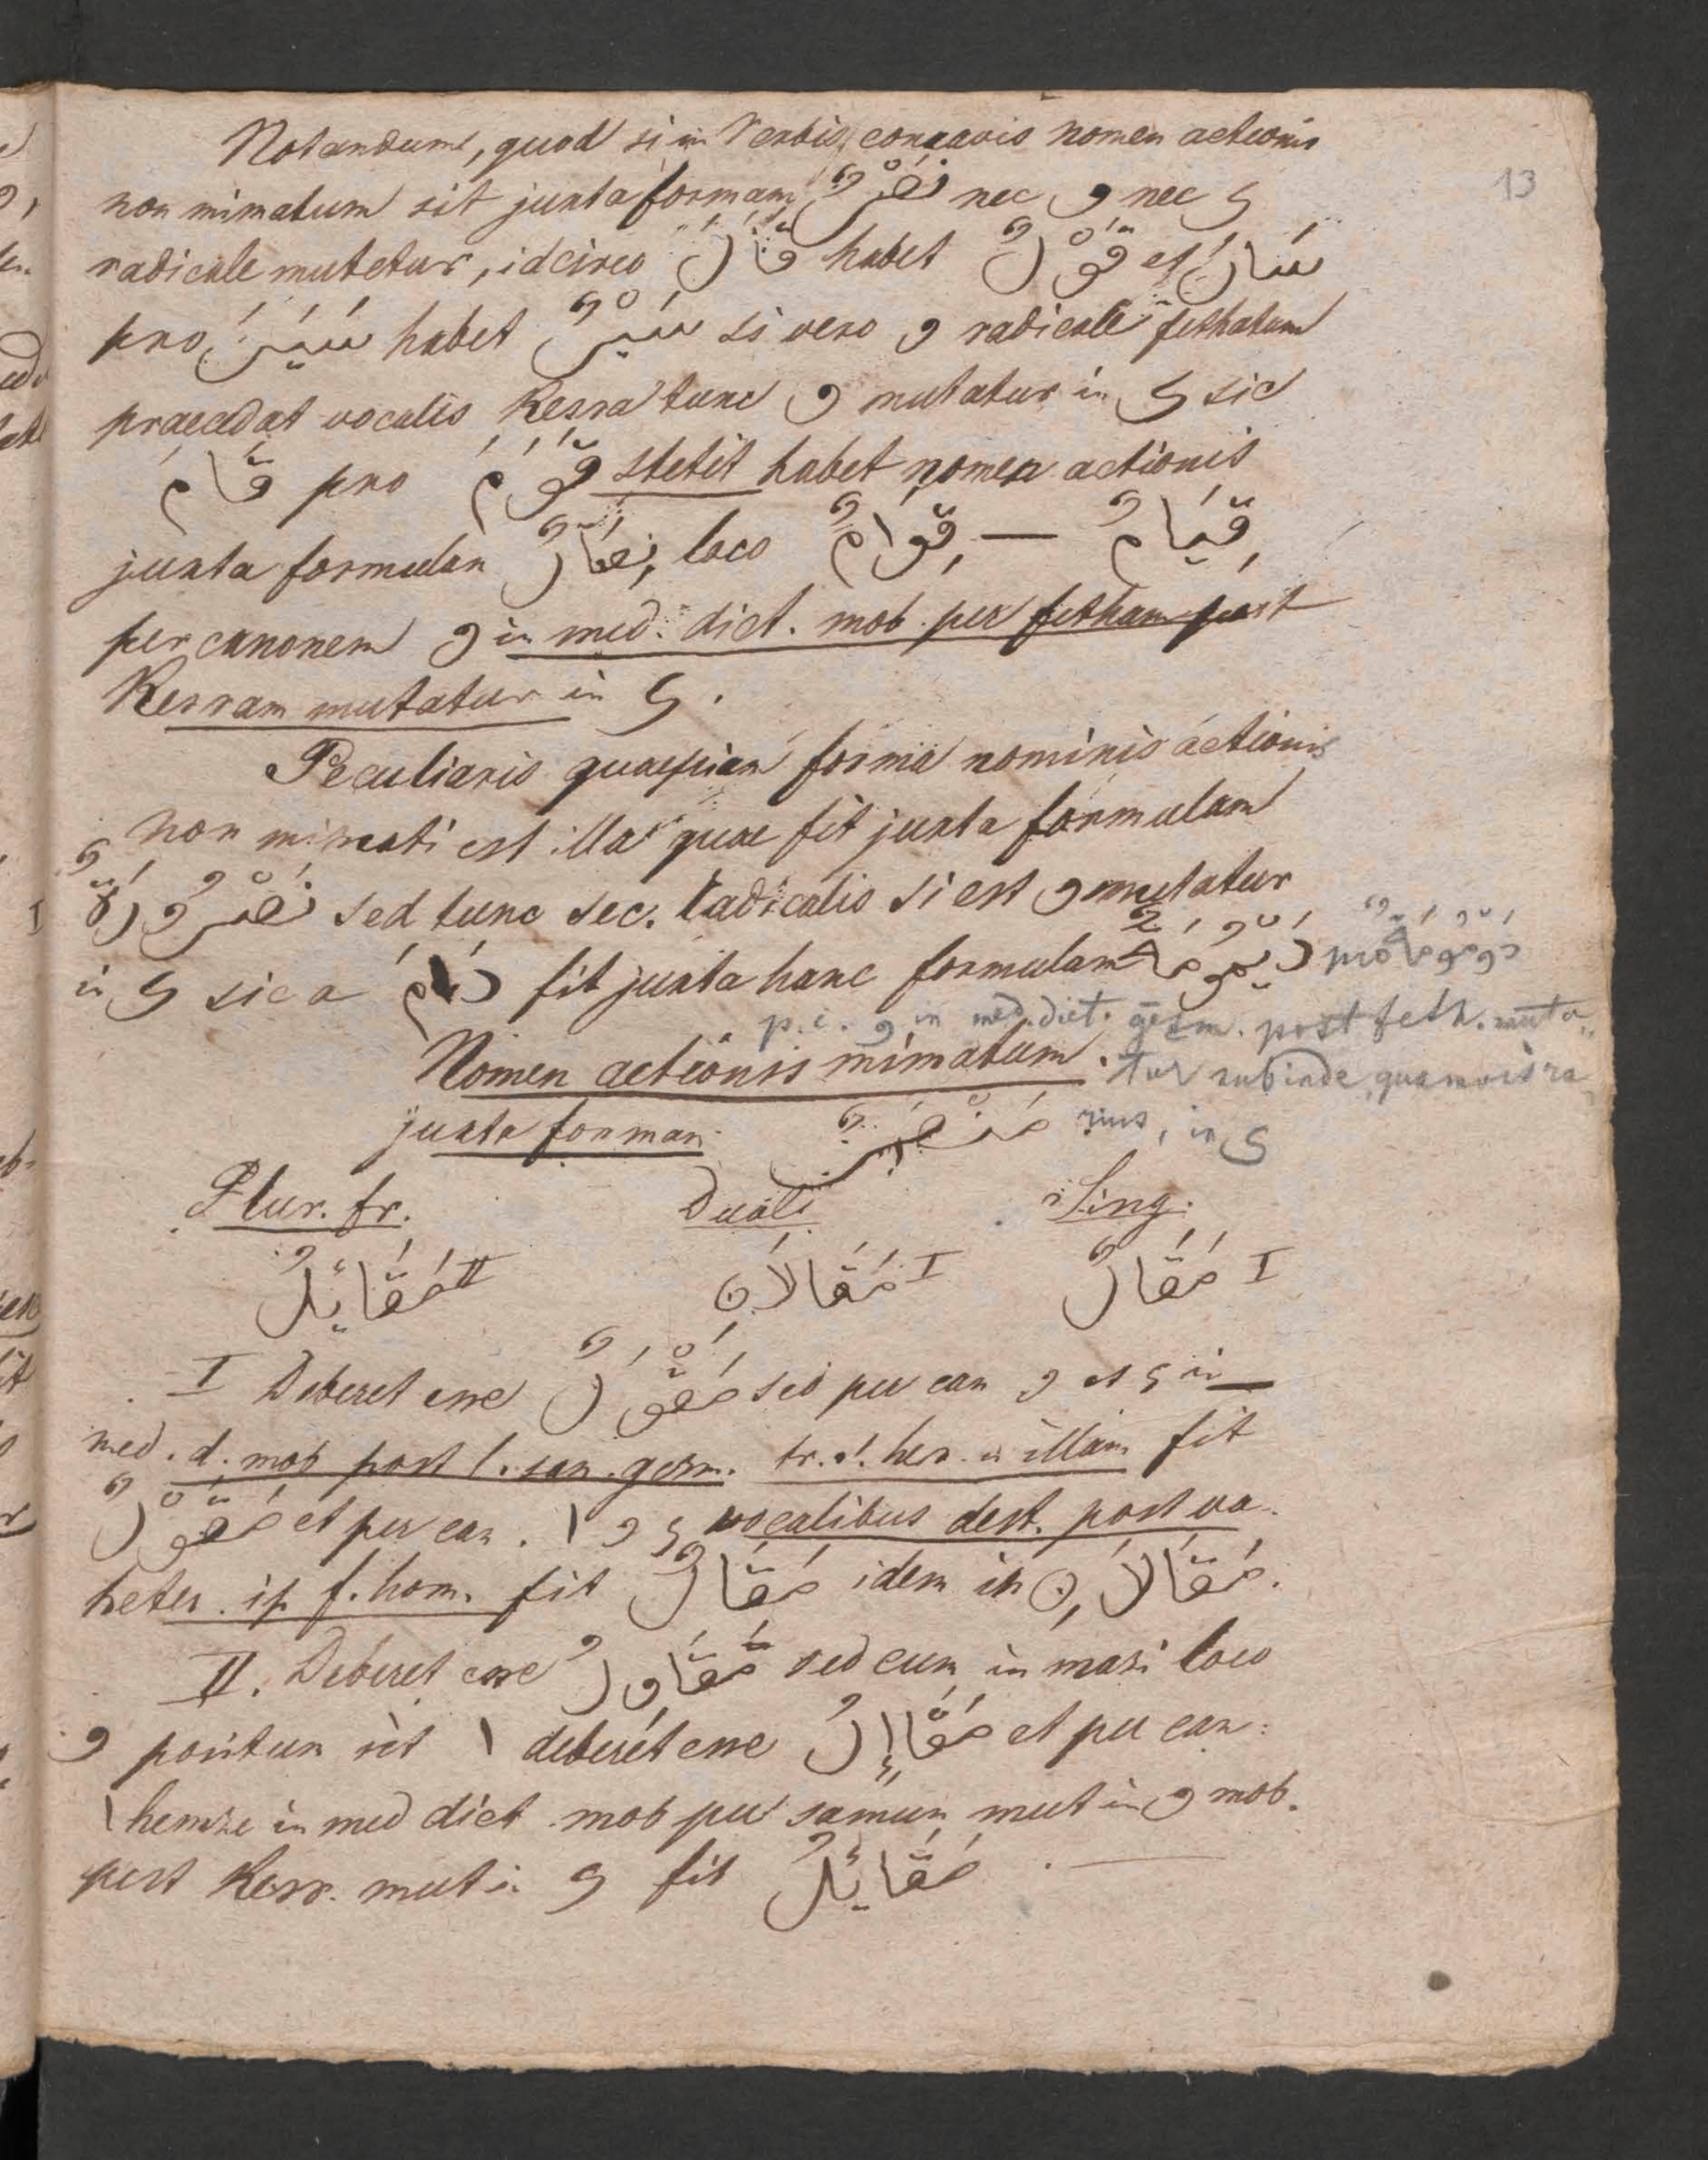 13
Notandum, quod si in Verbis concavis nomen actionis
non mimatum sit juxta formam نَصْرٌ nec و nec ى
radicale mutetur, idcirco قَالَ habet قَوْلٌ et سَارَ
pro سَيَرَ habet سَيْرٌ si vero و radicale fethatum
praecedat vocalis Kesra tunc و mutatur in ى sic
قَامَ pro قَوَمَ stetit habet nomen actionis
juxta formulan نِصَارٌ loco قِوَامٌ — قِيَامٌ
per canonem و in med. dict. mob. per fetham post
Kesram mutatur in ى.
Peculiaris quaepiam forma nominis actionis
non mimati est illa quae fit juxta formulam
نَصْرُورَةٌ sed tunc sec. radicalis si est و mutatur
in ى sic a دَامَ fit juxta hanc formulam دَيْمُومَةٌ pro دَوْمُومَةٌ
p. c. و in med. dict. gesm. post feth. muta-
tur subinde, quamvis ra
rius, in ى
Nomen actionis mimatum.
juxta forman مَنْصَرٌ
Plur. fr. Duali Sing.
II مَقَائِلُ I مَقَالَانِ I مَقَالٌ
I Deberet esse مَقْوَلٌ sed per can و et ى in
med. d. mob post l. san. gesm. tr. s. her. in illam fit
مَقَوْلٌ et per can. ا و ى vocalibus dest. post vo.
heter. in f. hom. fit مَقَالٌ idem in مَقَالَانِ.
II. Deberet esse مَقَاوِلُ sed cum in masi loco
و positum sit ا deberet esse مَقَاإِلُ et per can:
ا hemze in med dict mob per samun mut in و mob.
post Kesr. mut in ى fit مَقَائِلُ